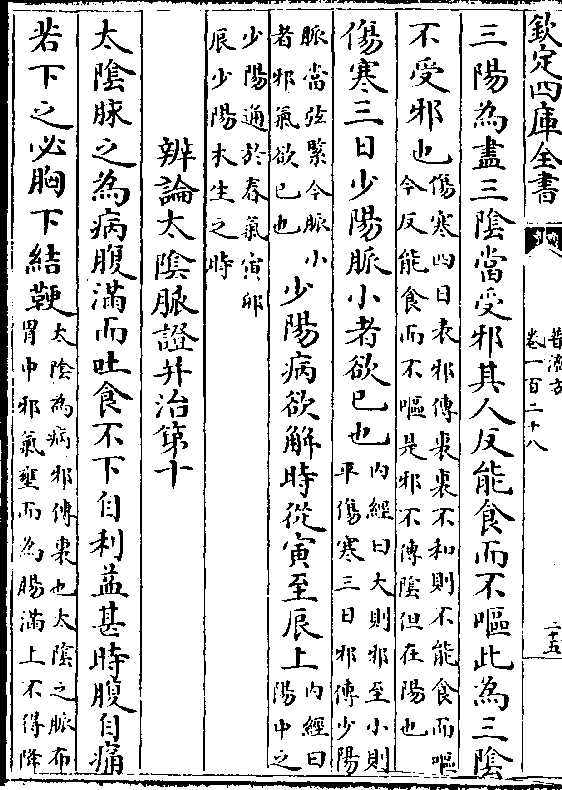 欽定四庫全書
普濟方
卷一百二十八
二十五
三陽為盡三陰當受邪其人反能食而不嘔此為三陰
不受邪也傷寒四日表邪傳裏裏不和則不能食而嘔
今反能食而不嘔是邪不傳陰但在陽也
傷寒三日少陽脈小者欲已也内經曰大則邪至小則
平傷寒三日邪傳少陽
脈當弦緊今脈小
者邪氣欲已也
少陽病欲解時從寅至辰上内經曰
陽中之
少陽通於春氣寅卯
辰少陽木生之時
辨論太陰脈證并治第十
太陰脉之為病腹滿而吐食不下自利益甚時腹自痛
若下之必胸下結鞕太陰為病邪傳裏也太陰之脈布
胃中邪氣壅而為腸滿上不得降